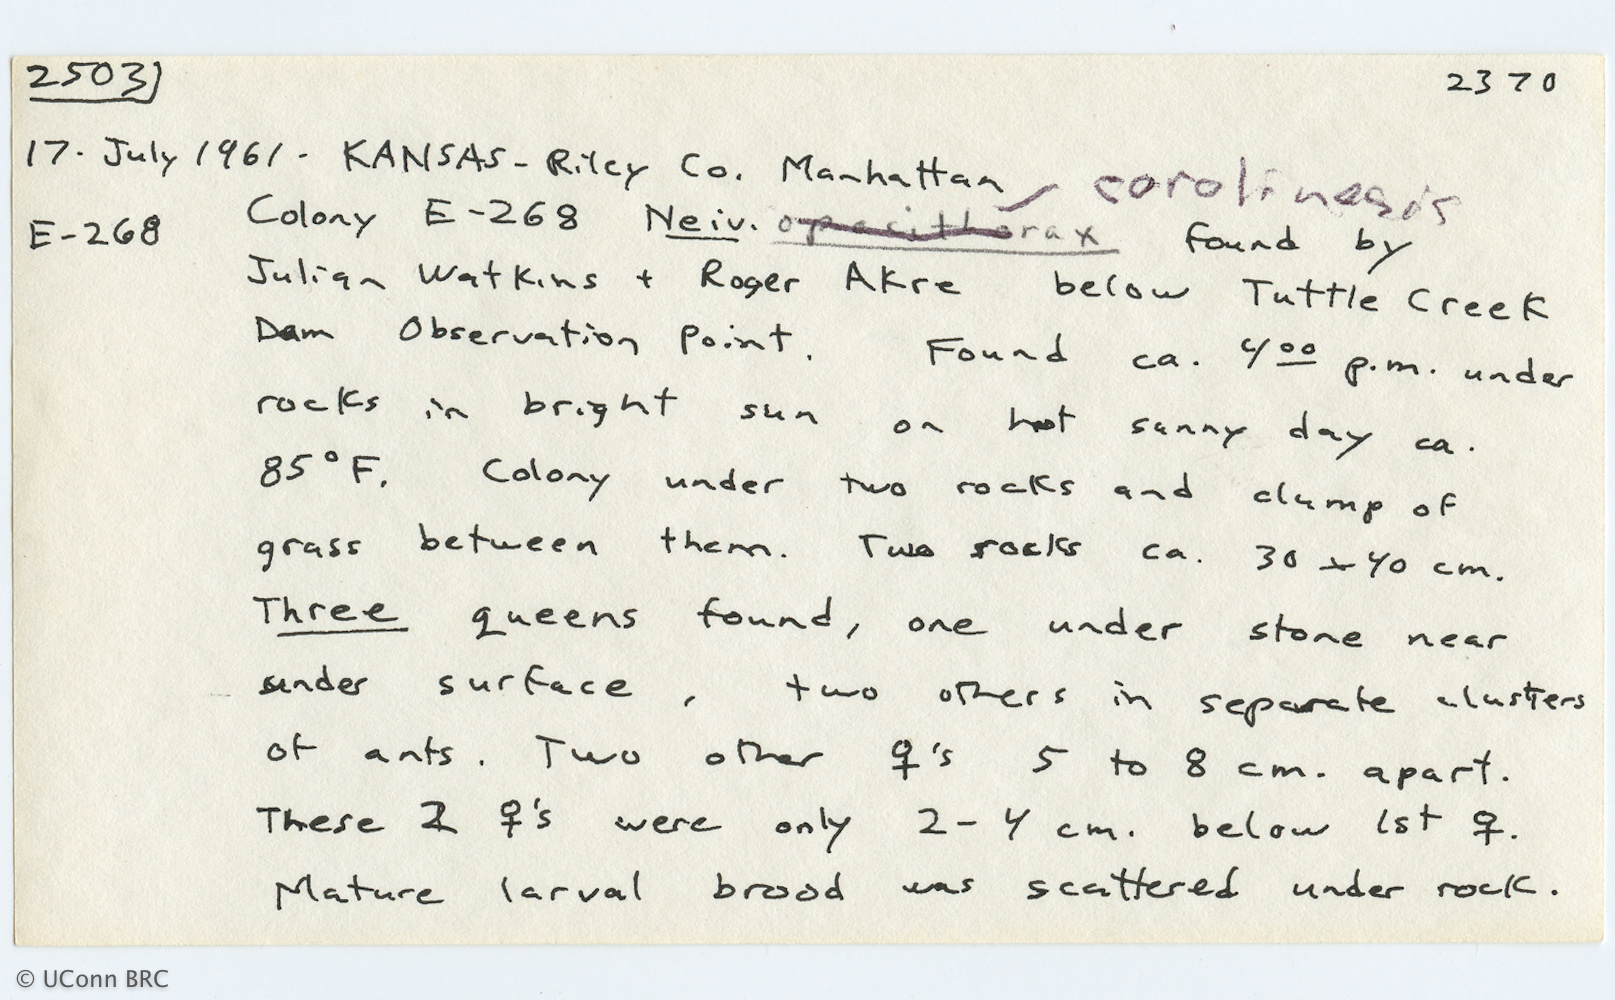 2503) 2370
17. July 1961. KANSAS - Riley Co. Manhattan
carolinensis
E-268 Colony E-268 Neiv. opacithorax found by
Julian Watkins + Roger Akre below Tuttle Creek
Dam Observation Point. Found ca. 4 00 p.m. under
rocks in bright sun on hot sunny day ca.
85°F. Colony under two rocks and clump of
grass between them. Two rocks ca. 30 x 40 cm.
Three queens found, one under stone near
under surface, two others in separate clusters
of ants. Two other ♀'s 5 to 8 cm. apart.
These 2 ♀'s were only 2-4 cm. below 1st ♀.
Mature larval brood was scattered under rock.
© UConn BRC